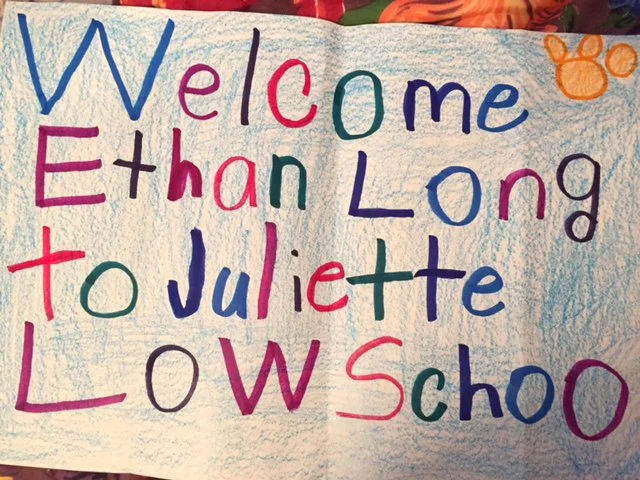 Welcome
Ethan Long
to Juliette
Low Schoo